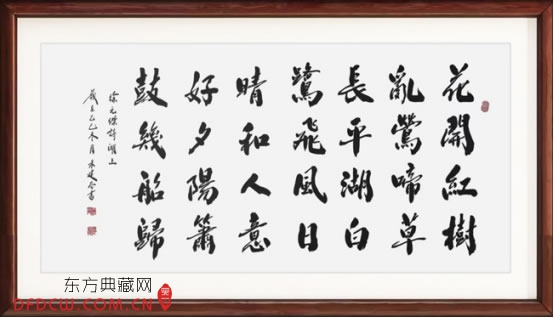 花開紅樹
亂鶯啼草
長平湖白
鷺飛風日
晴和人意
好夕陽簫
鼓幾船歸
徐元傑詩湖上
歲冬月書
东方典藏网
DFDCW.COM.CN